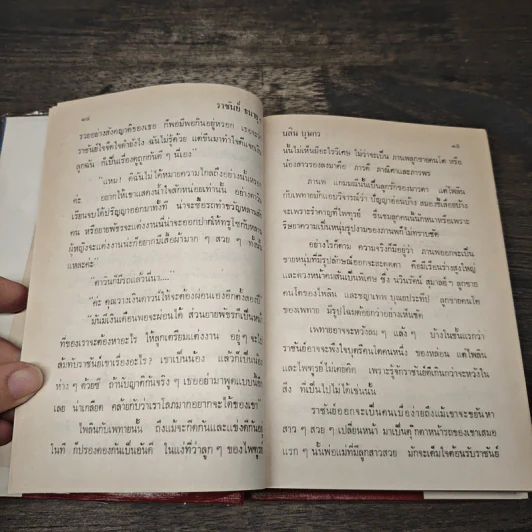 ๑๔
ราชันย์ ธนาดุ
รวยอย่างสังคญาติของเธอ ก็พอมีพอกินอยู่หรอก เธอจะ
ราชันย์ใจคิดใจดำยังไง ฉันไม่รู้ด้วย แต่ขืนมาทำใจดีแจก
ลูกฉัน ก็เป็นเรื่องคุณถูกกันดี ๆ นี่เอง"
"แหม! ดีฉันไม่ได้หมายความไกลถึงอย่างนั้นหรอก
ค่ะ อยากให้เขาแสดงน้ำใจสักหน่อยเท่านั้น อย่าง
เรียนจบได้ปริญญาออกมาทั้งที น่าจะซื้อรถทำขวัญหลาน
คน หรืออายพัชรจะแต่งงานนี่น่าจะออกปากให้ทรูไซกับหลาน
ผู้หญิงจะแต่งงานนะก็อยากมีเสื้อผ้ามาก ๆ สวย ๆ ทั้งนั้น
แหละค่ะ"
"ตาวินก็มีรถแล้วนี่นา...."
"ค่ะ คุณวางเงินดาวน์ให้จะต้องผ่อนเองอีกตั้งสองปี"
"มันมีเงินเดือนพอจะผ่อนได้ ส่วนยายพัชรก็เป็นหน้า
ที่ของเราจะต้องหาอะไร ให้ลูกเตรียมแต่งงาน อยู่ ๆ จะไป
สมทบราชันย์เขาเรื่องอะไร? เขาเป็นน้อง แล้วก็เป็นน้อง
ห่าง ๆ ด้วยซี ถ้านับญาติกันจริง ๆ เธออย่ามาพูดแบบนี้อีก
เลย น่าเกลียด คล้ายกับว่าเราโลภมากอยากจะได้ของเขา"
ไพลินกับเพทายนั้น ถึงแม้จะกีดกันและแข่งดีกัน
ในที ก็ปรองดองกันเป็นอันดี ในแง่ที่ว่าลูก ๆ ของไพฑูรย์
นลิน บุษกร
๑๕
นั้นไม่เห็นมีอะไรวิเศษ ไม่ว่าจะเป็น ภานพลูกชายคนโต หรือ
น้องสาวรองลงมาคือ ภารดี ภาณิตาและภาวพร
ภานพ แกมมณีนั้นเป็นลูกรักของมารดา แต่ไพลิน
กับเพทายมักแอบวิจารณ์ว่า ปัญญาอ่อนบ้าง สมอพิเลียอย่าง
จะเพราะรำคาญที่ไพฑูรย์ ชื่นชมลูกคนนี้นักหนาหรือเพราะ
ริษยาความเป็นหนุ่มรูปงามของภานพก็ไม่ทราบชัด
อย่างไรก็ตาม ความจริงก็มีอยู่ว่า ภานพออกจะเป็น
ชายหนุ่มที่มีรูปลักษณ์ออกจะสะดุดตา คือมีเรือนร่างสูงใหญ่
และดวงหน้าคมสันเป็นพิเศษ ซึ่ง นวินรัตน์ สุมาลย์ฯ ลูกชาย
คนโตของไพลิน และชญาเทพ บุณยประทีป ลูกชายคนโต
ของเพทาย มีรูปโฉมด้อยกว่าอย่างเห็นชัด
เพทายอาจจะหวังลม ๆ แล้ง ๆ บ้างในชั้นแรกว่า
ราชันย์อาจจะพึงใจบุตรีคนใดคนหนึ่ง ของหล่อน แต่ไพลิน
และไพฑูรย์ไม่เคยคิด เพราะรู้จักราชันย์ดีเกินกว่าจะหวังใน
สิ่ง ที่เป็นไปไม่ได้เช่นนั้น
ราชันย์ออกจะเป็นคนเบื่อง่ายถึงแม้เขาจะขยันหา
สาว ๆ สวย ๆ เปลี่ยนหน้า มาเป็นตุ๊กตาหน้ารถของเขาเสมอ
แรก ๆ นั้นพ่อแม่ที่มีลูกสาวสวย มักจะเต็มใจต้อนรับราชันย์